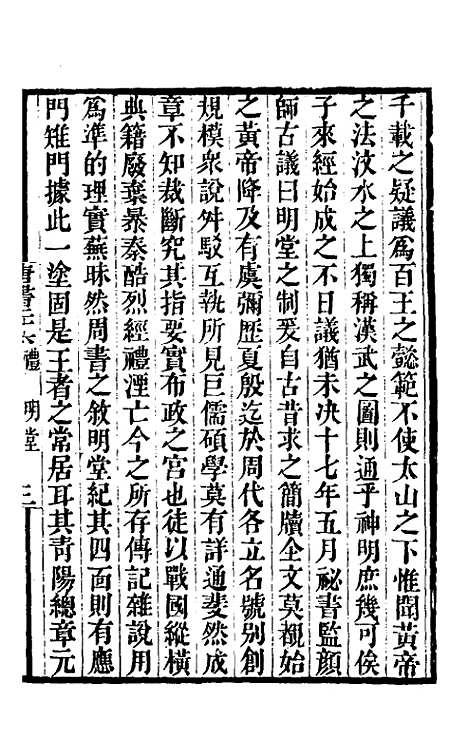 千載之疑議爲百王之懿範不使太山之下惟聞黃帝
之法汶水之上獨稱漢武之圖則通乎神明庶幾可俟
子來經始成之不日議猶未決十七年五月祕書監顏
師古議曰明堂之制爰自古昔求之簡牘全文莫覩始
之黃帝降及有虞彌歷夏殷迄於周代各立名號別創
規模衆說舛駁互執所見巨儒碩學莫有詳通斐然成
章不知裁斷究其指要實布政之宮也徒以戰國縱橫
典籍廢棄暴秦酷烈經禮湮亡今之所存傳記雜說用
爲準的理實蕪昧然周書之敘明堂紀其四面則有應
門雉門據此一塗固是王者之常居耳其靑陽總章元
禮 明堂 三